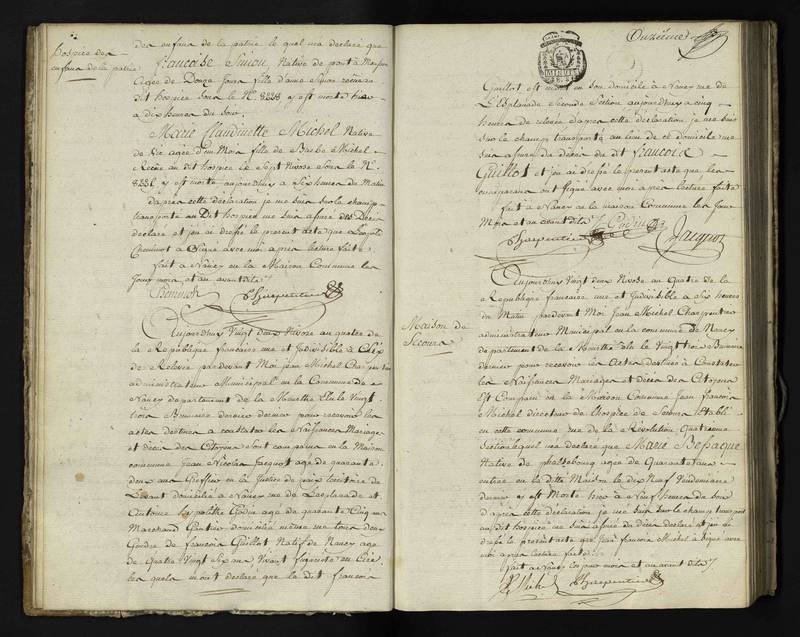 Hospice des
enfans de la patrie
des enfans de la patrie le quel m'a declaré que
françoise Simon, Native de pont à Mousson
Agée de Douze Jours fille d'anne Simon reçûe au
dit hospice sous le N° 8228 y est morte hier
a dix heures du soir.
Marie Claudinette Michel Native
de Vic agée d'un Mois fille de Barbe Michel
Reçûe au dit hospice le Sept Nivose sous le N°
y est morte aujourd'huy a Six heures du Matin
D'après cette déclaration je me suis sur le champ
transporté au Dit hospice me suis assuré des Décès
declaré et j'ai dressé le present acte que Leopold
Cheminot a Signé avec moi après lecture faite.
fait a Nancy en la Maison Commune les
Jour, mois et an avant dits.
Cheminot Charpentier
Aujourd'huy Vingt deux Nivose an quatre de
la République française une et Indivisible à
de Relevée pardevant Moi jean Michel Charpentier
administrateur Municipal en la Commune de
Nancy departement de la Meurthe Elu le Vingt
trois Brumaire dernier pour recevoir les
actes destinés a constater les Naissances Mariages
et décès des Citoyens Sont comparus en la Maison
commune Jean Nicolas Jacquot agé de quarante
deux ans Greffier en la Justice de paix
domicilié a Nancy rue de l'esplanade et
Antoine hypolitte Godin age de quarante Cinq ans
Marchand Gantier domicilié même rue
Gendre de francois Guillot Natif de Nancy age
de Quatre Vingt Six ans Vivant
les quels m'ont déclaré que le dit francois
Onzième
Guillot est mort en son domicile à Nancy rue de
L'Esplanade Seconde Section aujourd'huy a cinq
heures de relevée d'après cette déclaration je me suis
sur le champ transporté au lieu de ce domicile me
suis assuré du décès du dit françois
Guillot et j'ai dressé le present acte que les
comparans ont signé avec moi après lecture faite
fait à Nancy en la maison Commune les Jour
Mois et an avant dits. Godin
Charpentier Jacquot
Maison de
Secours
Aujourd'huy Vingt deux Nivose an Quatre de la
République francaise une et Indivisible a Six heures
du Matin pardevant Moi Jean Michel Charpentier
administrateur Municipal en la commune de Nancy
departement de la Meurthe elu le Vingt Trois Brumaire
dernier pour recevoir les Actes destinés à Constater
les Naissances Mariages et décès des Citoyens
Est Comparu en la Maison Commune Jean françois
Michel directeur de l'hospice de Secours établi
en cette commune rue de la Révolution Quatrieme
Section lequel m'a declaré que Marie Bessaque
Native de phalsbourg agée de Quarante ans
entrée en la ditte Maison le dix Neuf Vendemiaire
dernier y est Morte hier a Neuf heures du Soir
D'après cette déclaration je me suis sur le champ transporté
au dit hospice me suis assuré du décès declaré et j'ai
dressé le present acte que Jean françois Michel a Signé avec
moi après lecture faite
fait a Nancy les jour mois et an avant dits
Michel Charpentier